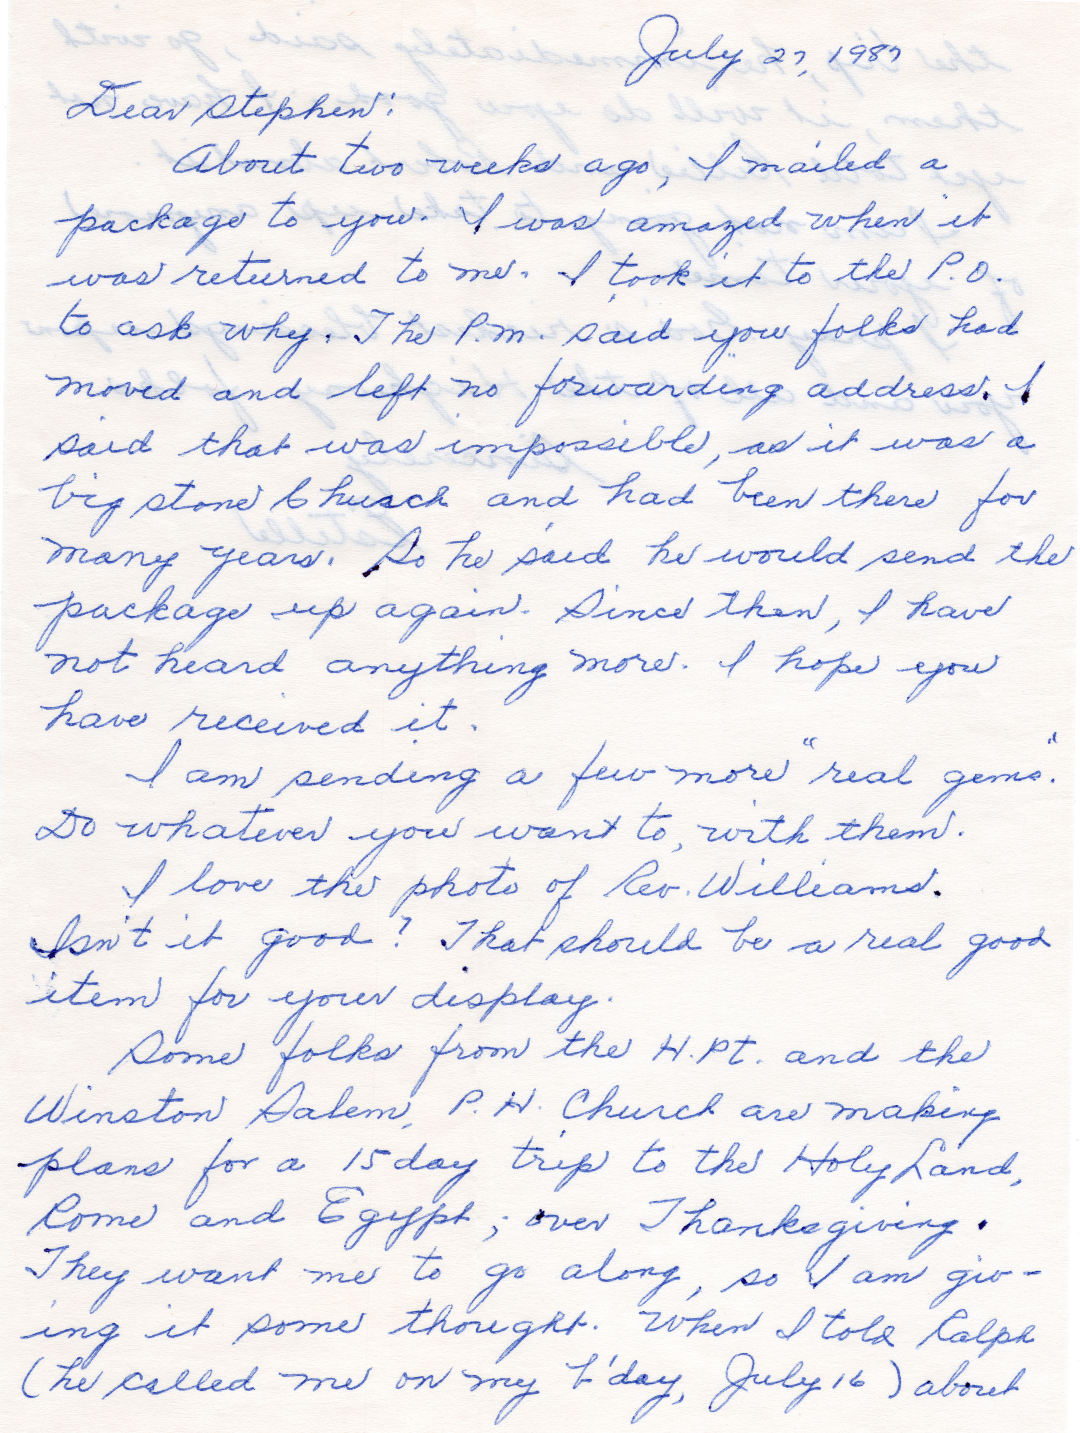 July 27, 1987
Dear Stephen:
About two weeks ago, I mailed a
package to you. I was amazed when it
was returned to me. I took it to the P.O.
to ask why. The P.M. said you folks had
moved and left no forwarding address. I
said that was impossible, as it was a
big stone Church and had been there for
many years. So he said he would send the
package up again. Since then, I have
not heard anything more. I hope you
have received it.
I am sending a few more "real gems."
Do whatever you want to, with them.
I love the photo of Rev. Williams.
Isn't it good? That should be a real good
item for your display.
Some folks from the H.Pt. and the
Winston Salem, P.H. Church are making
plans for a 15 day trip to the Holy Land,
Rome and Egypt; over Thanksgiving.
They want me to go along, so I am giv-
ing it some thought. When I told Ralph
(he called me on my b'day, July 16) about